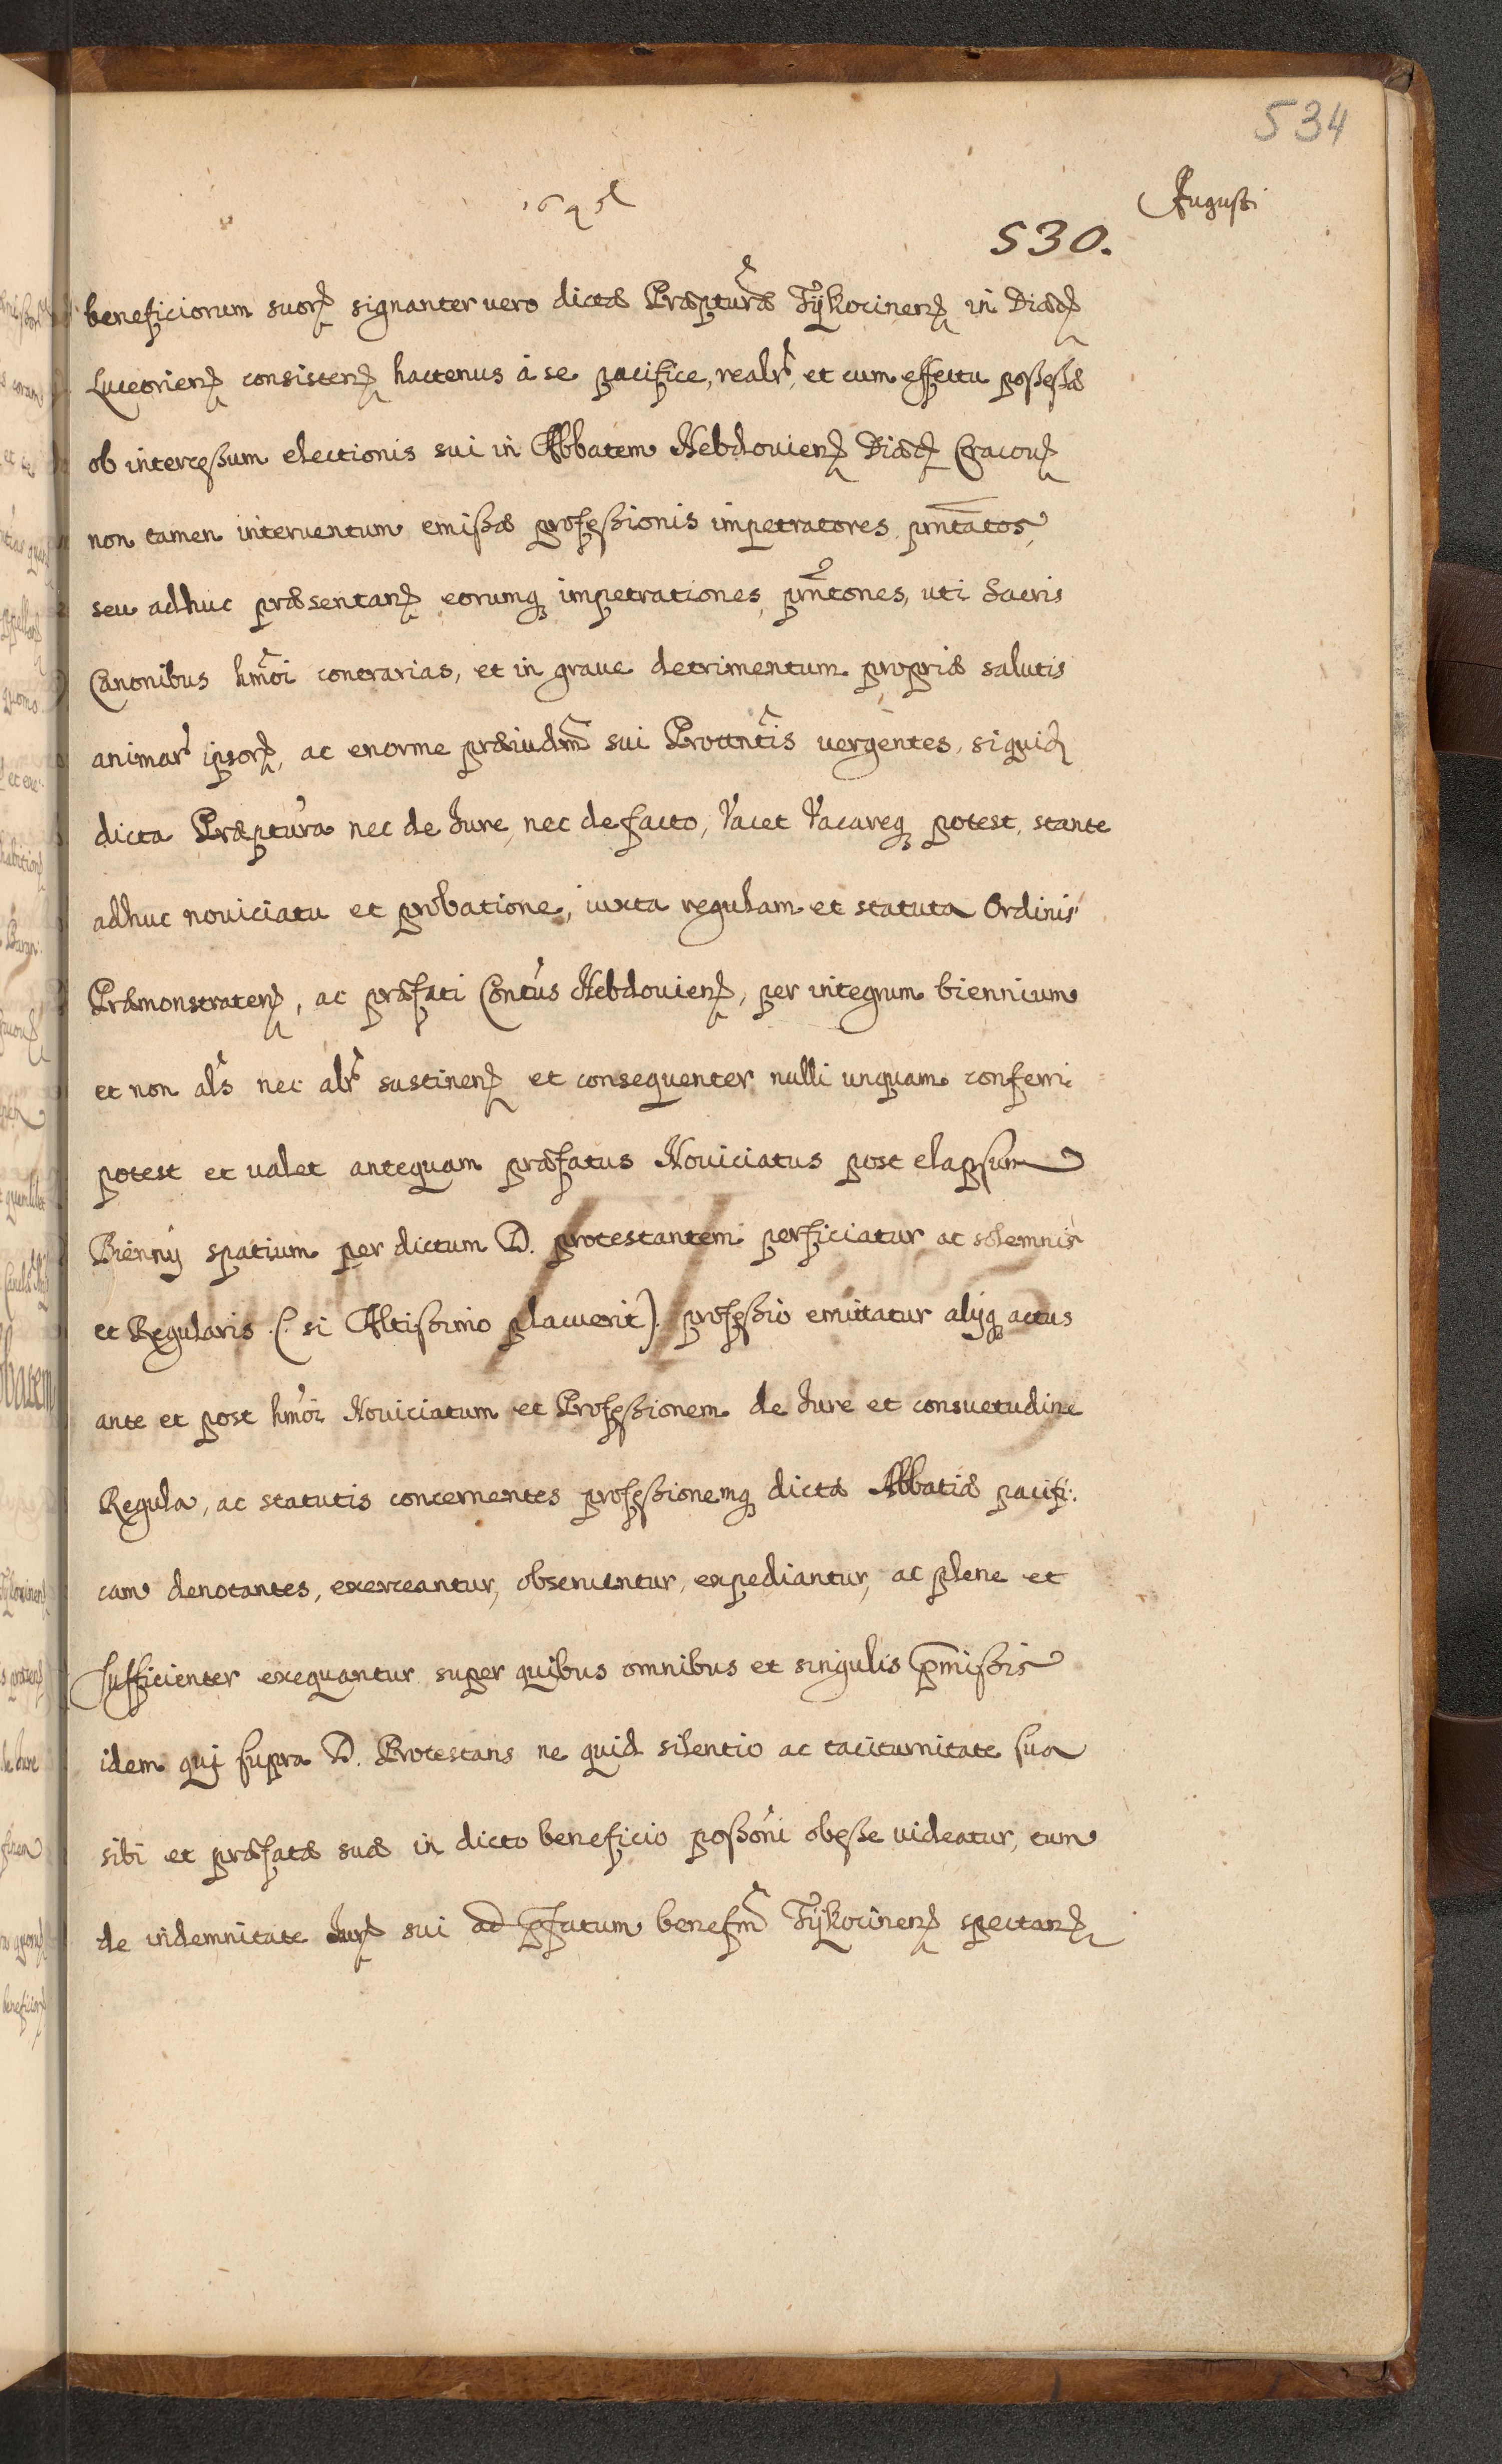 534
Augusti
530.
beneficiorum suorꝫ signanter vero dictæ Præpturæ Tÿkocinenꝫ in Diæcꝫ
Luceorienꝫ consistenꝫ hactenus à se pacifice, realr̃, et cum effectu possessæ
ob intercessum electionis sui in Abbatem Hebdovienꝫ Diæcꝫ Cracouꝫ
non tamen interventum emissæ professionis impetratores pñtatos,
seu adhuc præsentanꝫ eorumqꝫ impetrationes, pñtones, uti Sacris
Canonibus hm̃oi contrarias, et in graue detrimentum propriæ salutis
animar̃ ipsorꝫ, ac enorme præiudm̃ sui Prottñtis vergentes, siquidꝫ
dicta Præptura nec de Jure, nec de facto, Vacet Vacareqꝫ potest, stante
adhuc noviciatu et probatione, iuxta regulam et statuta Ordinis
Præmonstratenꝫ, ac præfati Contũs Hebdovienꝫ, per integrum biennium
et non als̃ nec alr̃ sustinenꝫ et consequenter nulli unquam conferri
potest et valet antequam præfatus Noviciatus post elapsum
Biennÿ spatium per dictum D. protestantem perficiatur ac solemnis
et Regularis (: si Altissimo placuerit) professio emittatur alÿqꝫ actus
ante et post hm̃oi Noviciatum et Professionem de Jure et consuetudine
Regula, ac statutis concernentes professionemqꝫ dictæ Abbatiæ pacifi:
cam denotantes, exerceantur, observentur, expediantur, ac plene et
sufficienter exequantur super quibus omnibus et singulis p̃missis
idem qui supra D. Protestans ne quid silentio ac taciturnitate sua
sibi et præfatæ suæ in dicto beneficio possõni obesse videatur, tum
de indemnitate Jurꝫ sui ad p̃fatum benefm̃ Tÿkocinenꝫ spectanꝫ